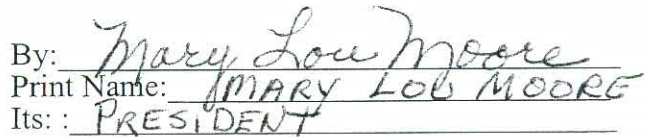 By: Mary Lou Moore
Print Name: MARY LOU MOORE
Its: : PRESIDENT